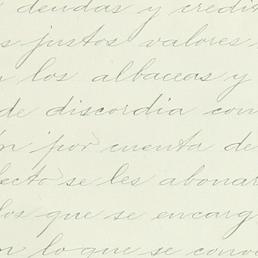 deudas y credit
s justos valores
n los albaceas y
de discordia com
n por cuenta de
fecto se les abonar
los que se encarg
n lo que se conv